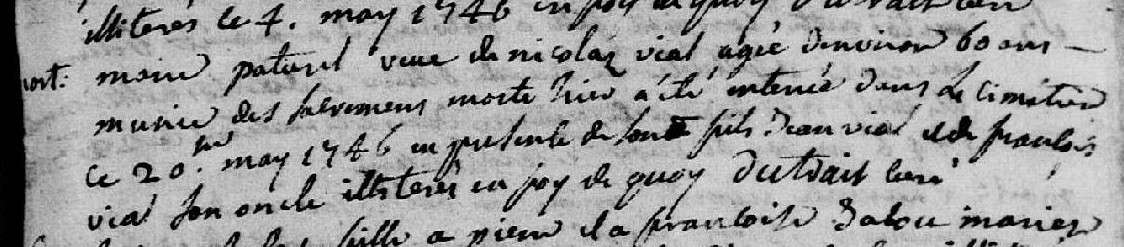 illiterés le 4. may 1746 en foy de quoy Dutrait curé
mort. marie paturel veuve de nicolas vial agée d'environ 60 ans —
munie des sacremens morte hier a été enterrée dans le cimetiere
ce 20.me may 1746 en presence de son fils Jean vial et de francois
vial son oncle illiterés en foy de quoy Dutrait curé
fille a pierre et a francoise Jalou mariez